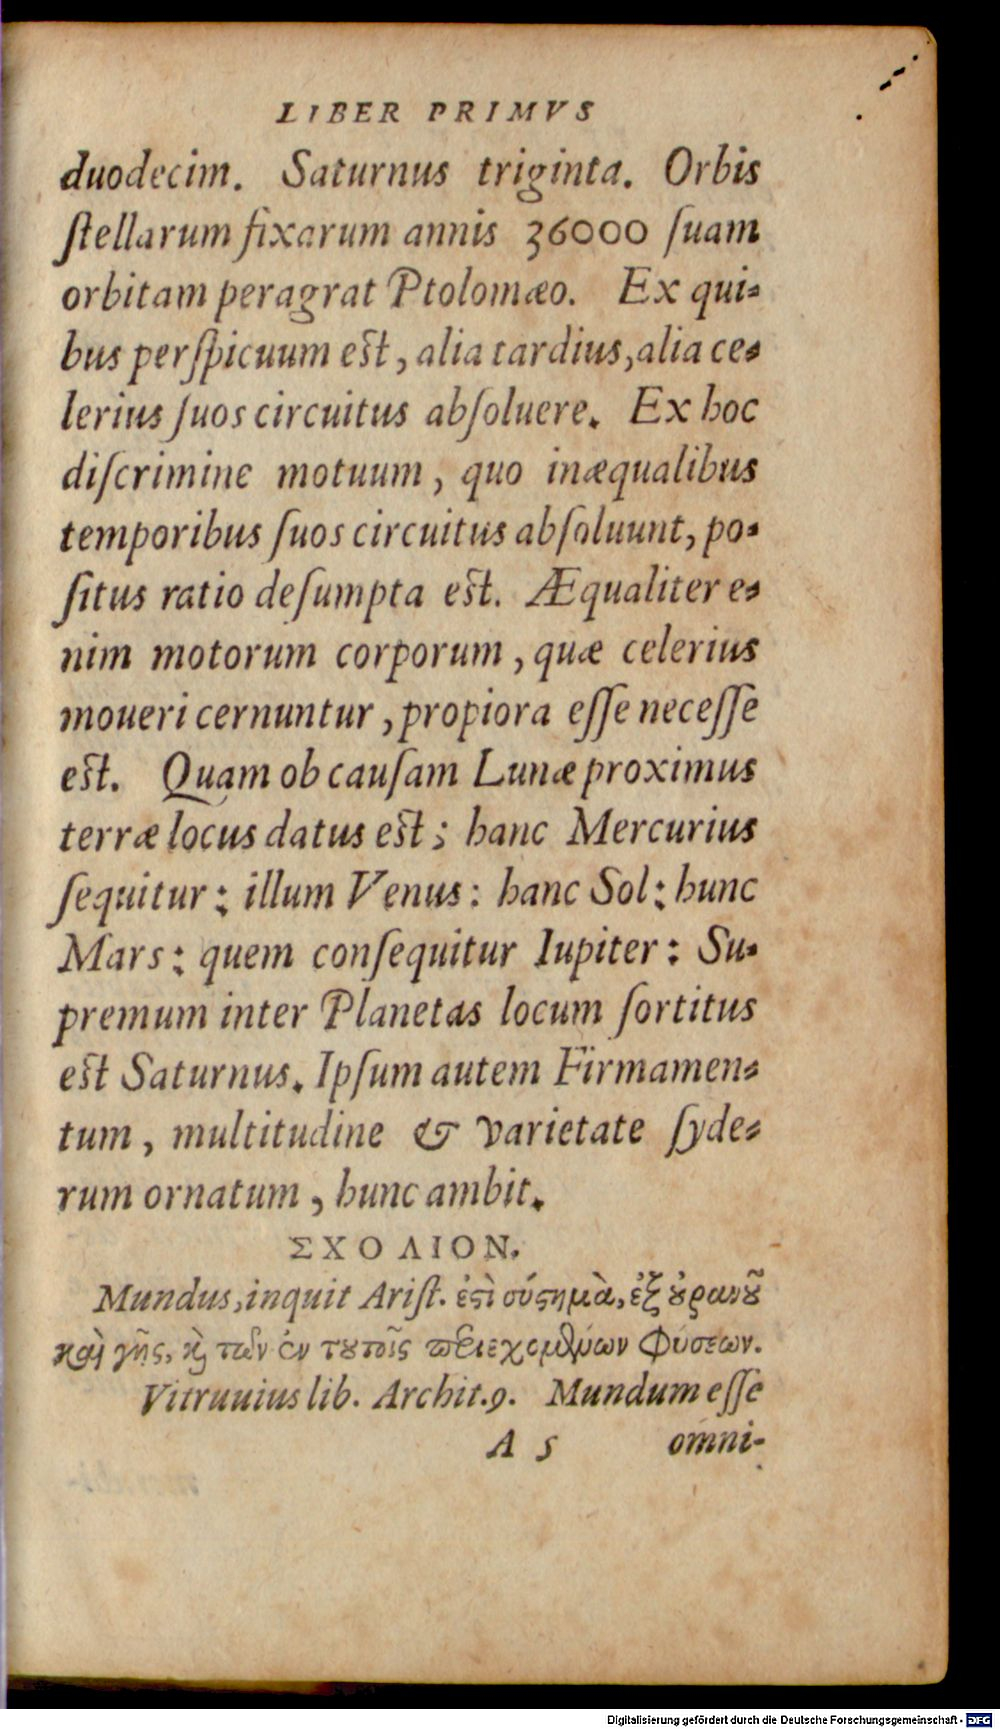 LIBER PRIMVS
duodecim. Saturnus triginta. Orbis
ſtellarum fixarum annis 36000 ſuam
orbitam peragrat Ptolomæo. Ex qui-
bus perſpicuum eſt, alia tardius, alia ce-
lerius ſuos circuitus abſoluere. Ex hoc
diſcrimine motuum, quo inæqualibus
temporibus ſuos circuitus abſoluunt, po-
ſitus ratio deſumpta eſt. Æqualiter e-
nim motorum corporum, quæ celerius
moueri cernuntur, propiora eſſe neceſſe
eſt. Quam ob cauſam Lunæ proximus
terræ locus datus eſt; hanc Mercurius
ſequitur: illum Venus: hanc Sol: hunc
Mars: quem conſequitur Iupiter: Su-
premum inter Planetas locum ſortitus
eſt Saturnus. Ipſum autem Firmamen-
tum, multitudine & varietate ſyde-
rum ornatum, hunc ambit.
ΣΧΟΛΙΟΝ.
Mundus, inquit Ariſt. ἐϛὶ σύϛημὰ, ἐξ ȣ̓ρανȣ͂
καὶ γῆς, ϗ̀ τῶν ἐν τȣτοῖς περιεχομένων φύσεων.
Vitruuius lib. Archit. 9. Mundum eſſe
A 5 omni-
Digitalisierung gefördert durch die Deutsche Forschungsgemeinschaft - DFG